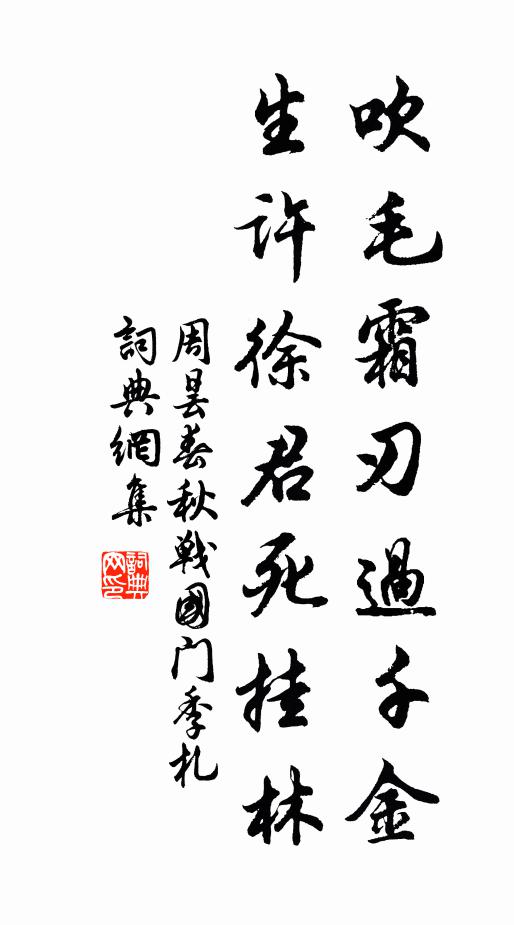 吹毛霜刃過千金
生許徐君死挂林
周曇春秋戰國门季札
詞典網集
詞典
网印